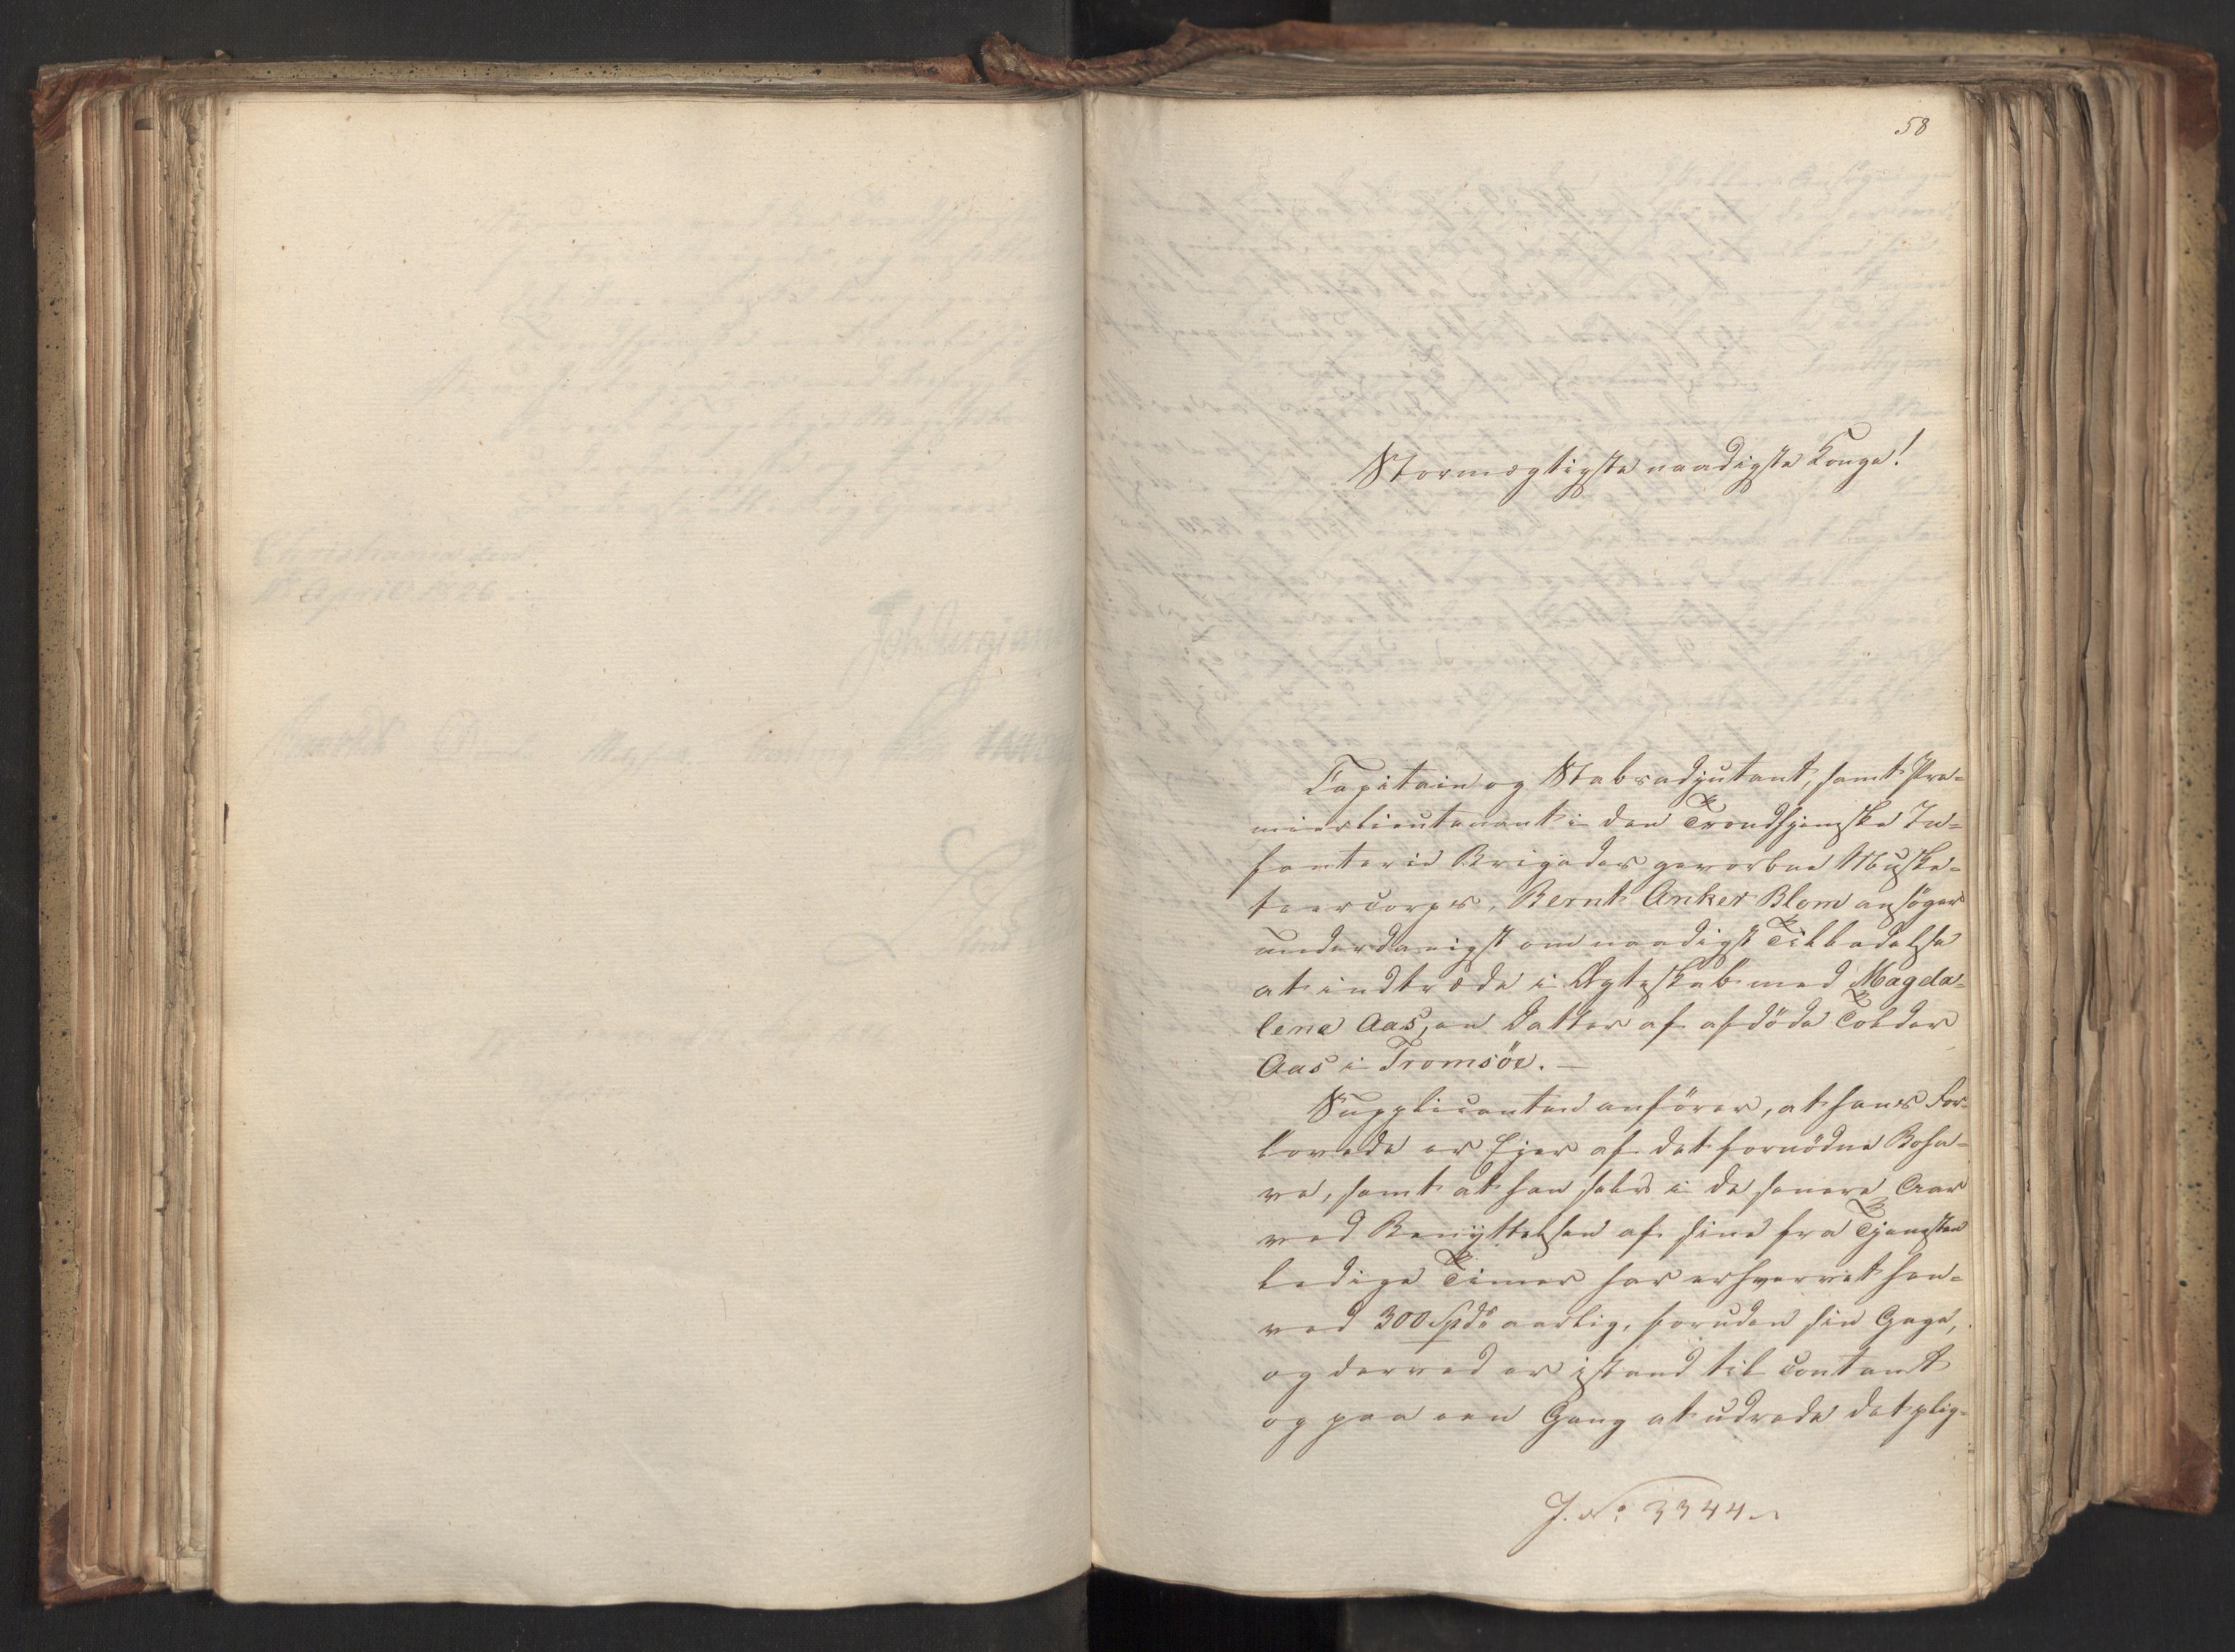 58
Stormægtigste naadigste Konge!
Capitain og Stabsadjutant, samt Pre-
mierlieutenant i den Trondhjemske In-
fanterie Brigades gevorbne Muske-
teercorps, Bernt Anker Blom ansöger
underdanigst om naadigst Tilladelse
at indtræde i Ægteskab med Magda-
lena Aas, en Datter af afdöde Tolder
Aas i Tromsöe. —
Supplicanten anförer, at hans For-
lovede er Ejer af det fornödne Boha-
ve, samt at han selv i de senere Aar
ved Benyttelsen af sine fra Tjenesten
ledige Timer har erhvervet hen-
ved 300 Spdr aarlig, foruden sin Gage,
og derved er istand til contant
og paa een Gang at udrede det plig-
J. No 3344.